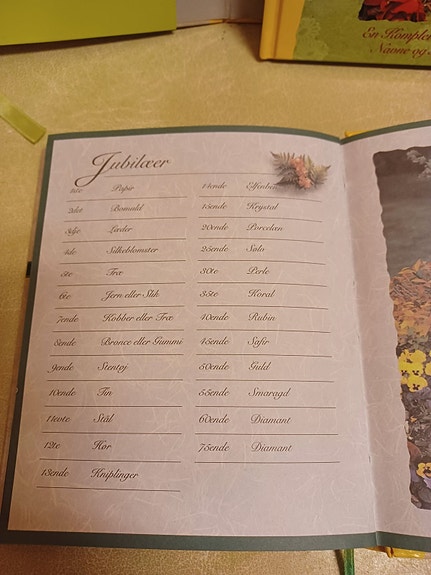 En Komplet
Navne og
Jubilæer
1ste Papir
2det Bomuld
3dje Læder
4de Silkeblomster
5te Træ
6te Jern eller Slik
7ende Kobber eller Træ
8ende Bronce eller Gummi
9ende Stentøj
10ende Tin
11evte Stål
12te Hør
13ende Kniplinger
14ende Elfenben
15ende Krystal
20ende Porcelæn
25ende Sølv
30te Perle
35te Koral
40ende Rubin
45ende Safir
50ende Guld
55ende Smaragd
60ende Diamant
75ende Diamant